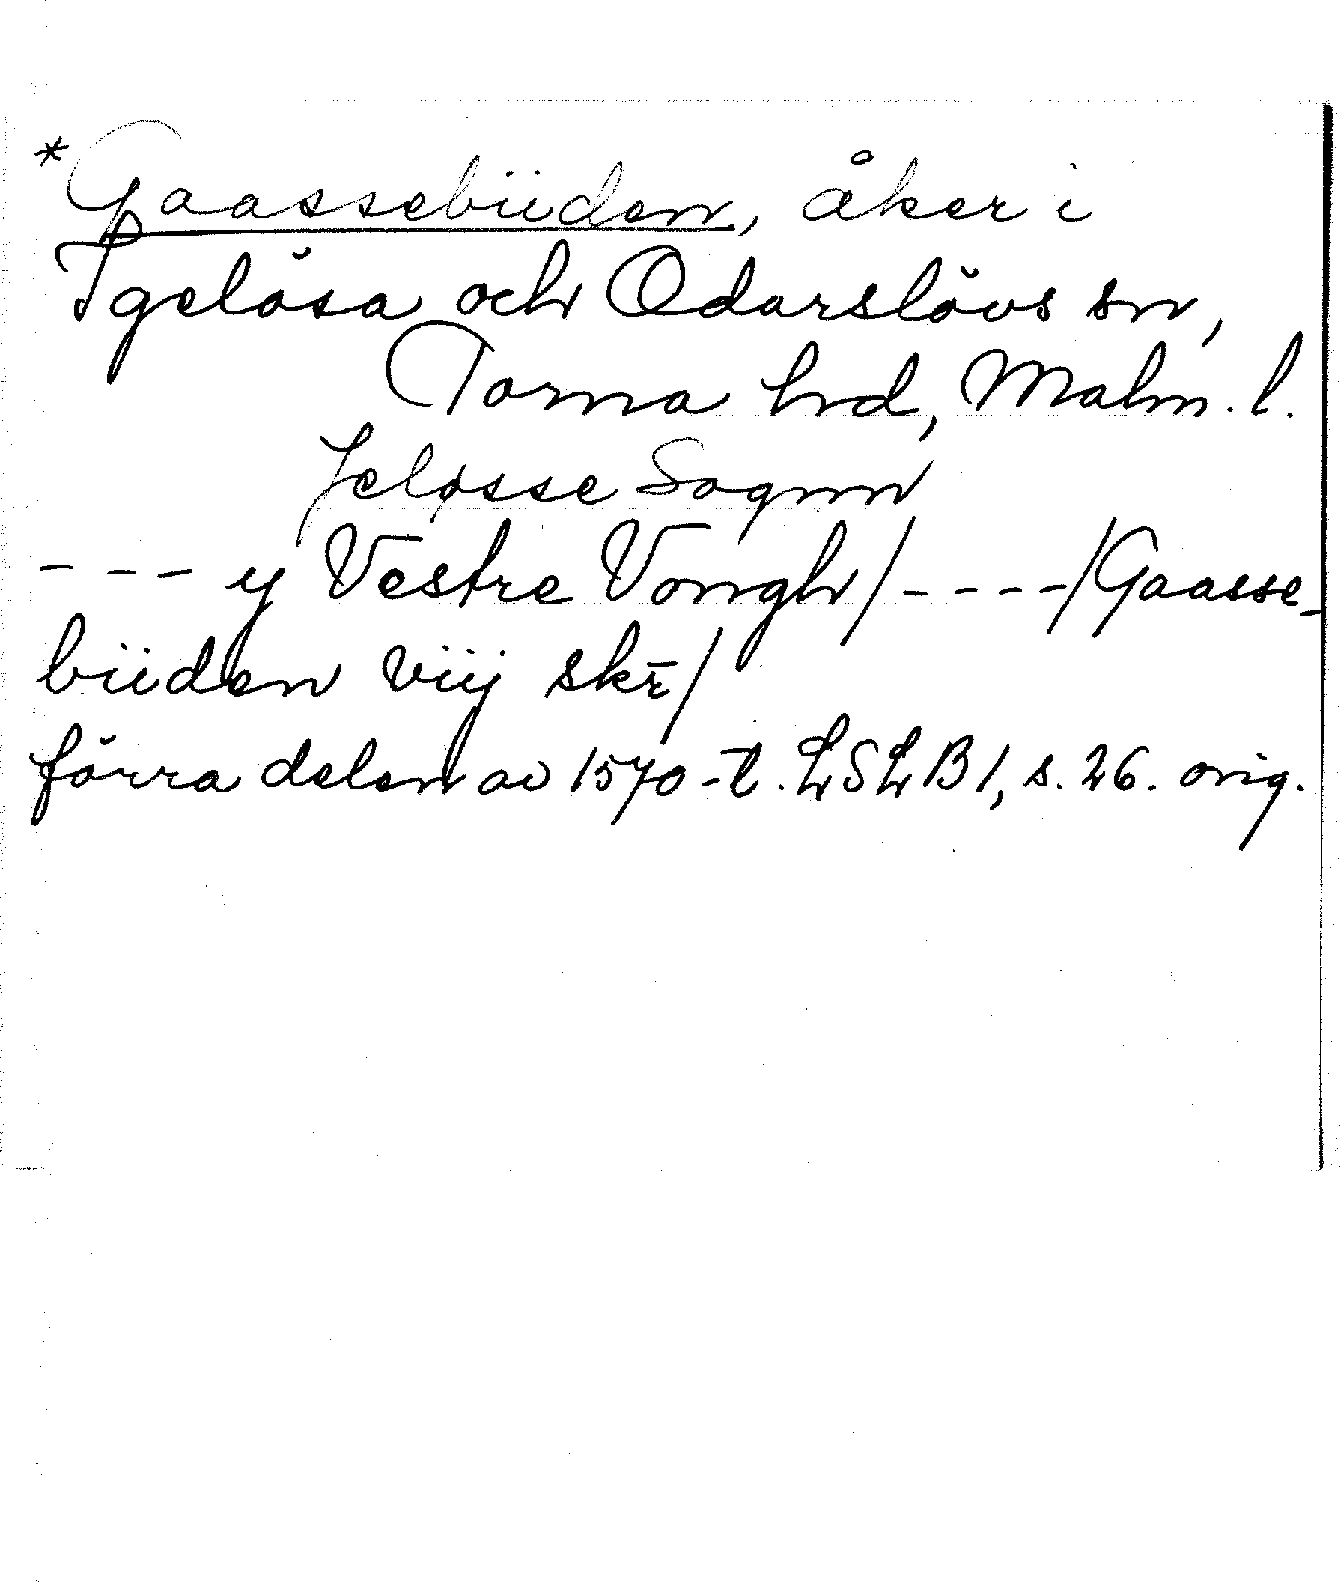 *Gaassebüden, åker i
Igelösa och Odarslövs sn,
Torna hrd, Malm. l.
Jeløsse Sognn
--- y Vestre Vongh/ ----/Gaasse-
büden viij skr̄/
förra delen av 1570-t. LSLB 1, s. 26. orig.